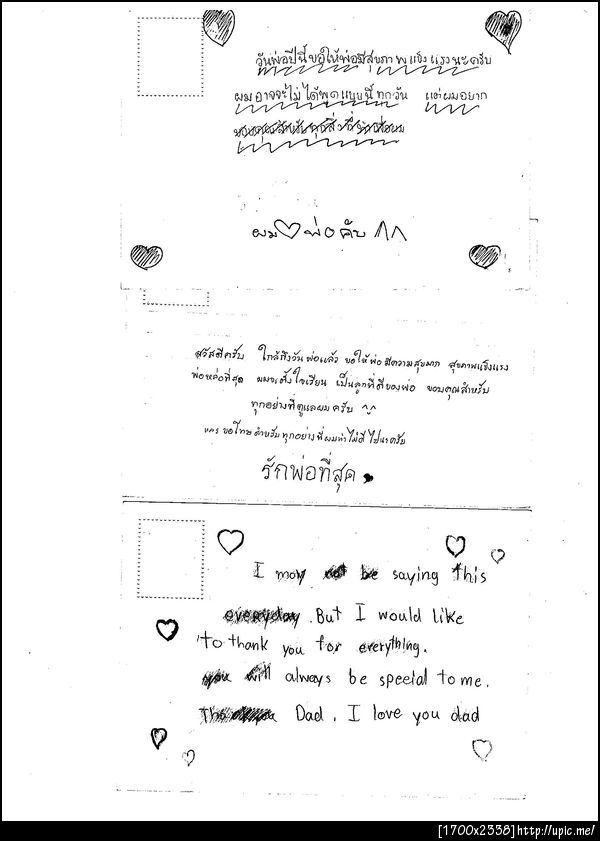 วันพ่อปีนี้ขอให้พ่อมีสุขภาพแข็งแรงนะครับ
ผมอาจจะไม่ได้พูดแบบนี้ทุกวัน แต่ผมอยาก
ผม♡พ่อคับ ^^
สวัสดีครับ ใกล้ถึงวันพ่อแล้ว ขอให้พ่อมีความสุขมาก สุขภาพแข็งแรง
พ่อหล่อที่สุด ผมจะตั้งใจเรียน เป็นลูกที่ดีของพ่อ ขอบคุณสำหรับ
ทุกอย่างที่ดูแลผมครับ ^^
และขอโทษสำหรับทุกอย่างที่ผมทำไม่ดีไปนะครับ
รักพ่อที่สุด
I may not be saying this
everyday. But I would like
to thank you for everything.
you will always be speeial to me.
Dad. I love you dad
[1700x2338]http://upic.me/